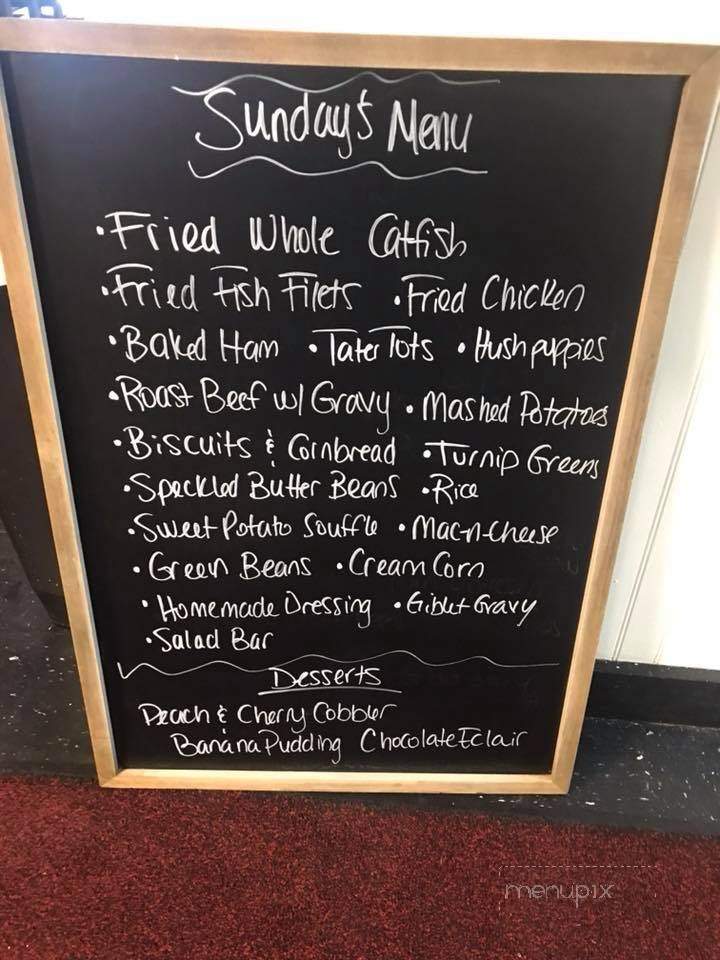 Sunday's Menu
•Fried Whole Catfish
•Fried Fish Filets •Fried Chicken
•Baked Ham •Tater Tots •Hushpuppies
•Roast Beef w/ Gravy •Mashed Potatoes
•Biscuits & Cornbread •Turnip Greens
•Speckled Butter Beans •Rice
•Sweet Potato Souffle •Mac-n-Cheese
•Green Beans •Cream Corn
•Homemade Dressing •Giblet Gravy
•Salad Bar
Desserts
Peach & Cherry Cobbler
Banana Pudding Chocolate Eclair
menupix